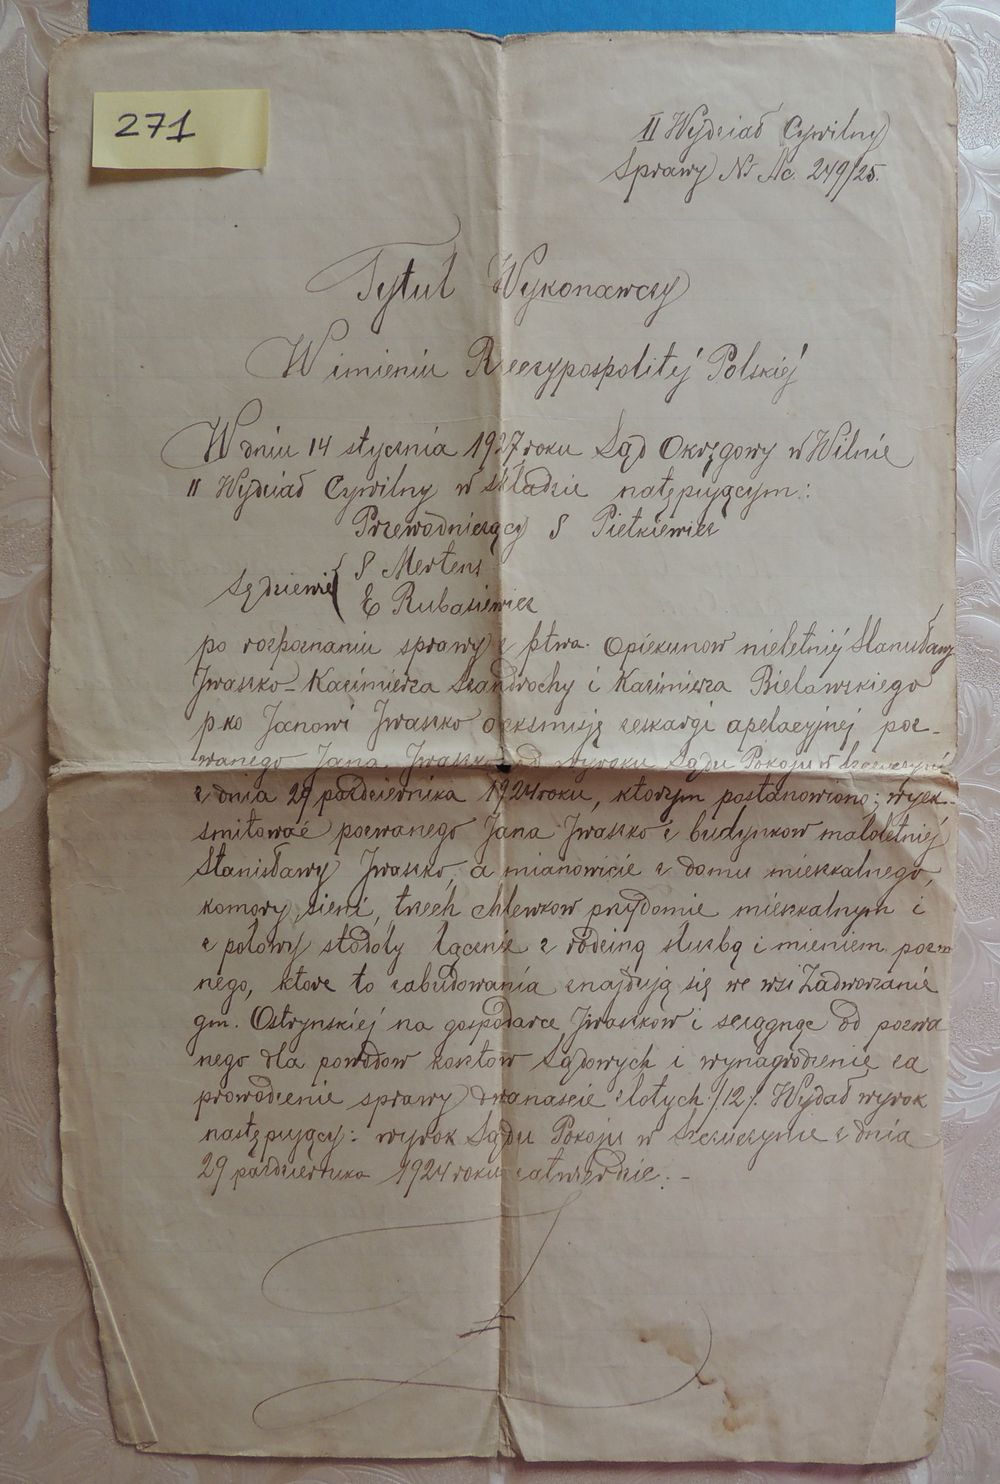 271
II Wydział Cywilny
Sprawy № Ac. 249/25.
Tytuł Wykonawczy
W imieniu Rzeczypospolitéj Polskiéj
W dniu 14 stycznia 1927 roku Sąd Okręgowy w Wilnie
II Wydział Cywilny w składzie natępującym:
Przewodniczący S Pietkiewicz
Sędziowie { S Mertens
E Rubasiewicz
po rozpoznaniu sprawy z ptwa. Opiekunow nieletniéj Stanisławy
Jwaszko - Kazimierza Szandrochy i Kazimierza Bielawskiego
p-ko Janowi Jwaszko o eksmisję zeskargi apelacyjnej poz-
wanego Jana Jwaszko od wyroku Sądu Pokoju w Szczuczynie
z dnia 29 października 1924 roku, którym postanowiono; wyek-
smitować pozwanego Jana Jwaszko z budynkow małoletniéj
Stanisławy Jwaszko, a mianowicie z domu mieszkalnego,
komory, sieni, trzech chlewkow przydomie mieszkalnym i
z połowy stodoły łącznie z rodziną służbą i mieniem pozwa
nego, ktore to zabudowania znajdują się we wsi Zadworzanie
gm. Ostrynskiéj na gospodarce Jwaszków i sciągnąc od pozwa
nego dla powodow kosztów Sądowych i wynagrodzenie za
prowadzenie sprawy dwanascie złotych /12/. Wydał wyrok
następujący: wyrok Sądu Pokoju w Szczuczynie z dnia
29 października 1924 roku zatwierdzic. -